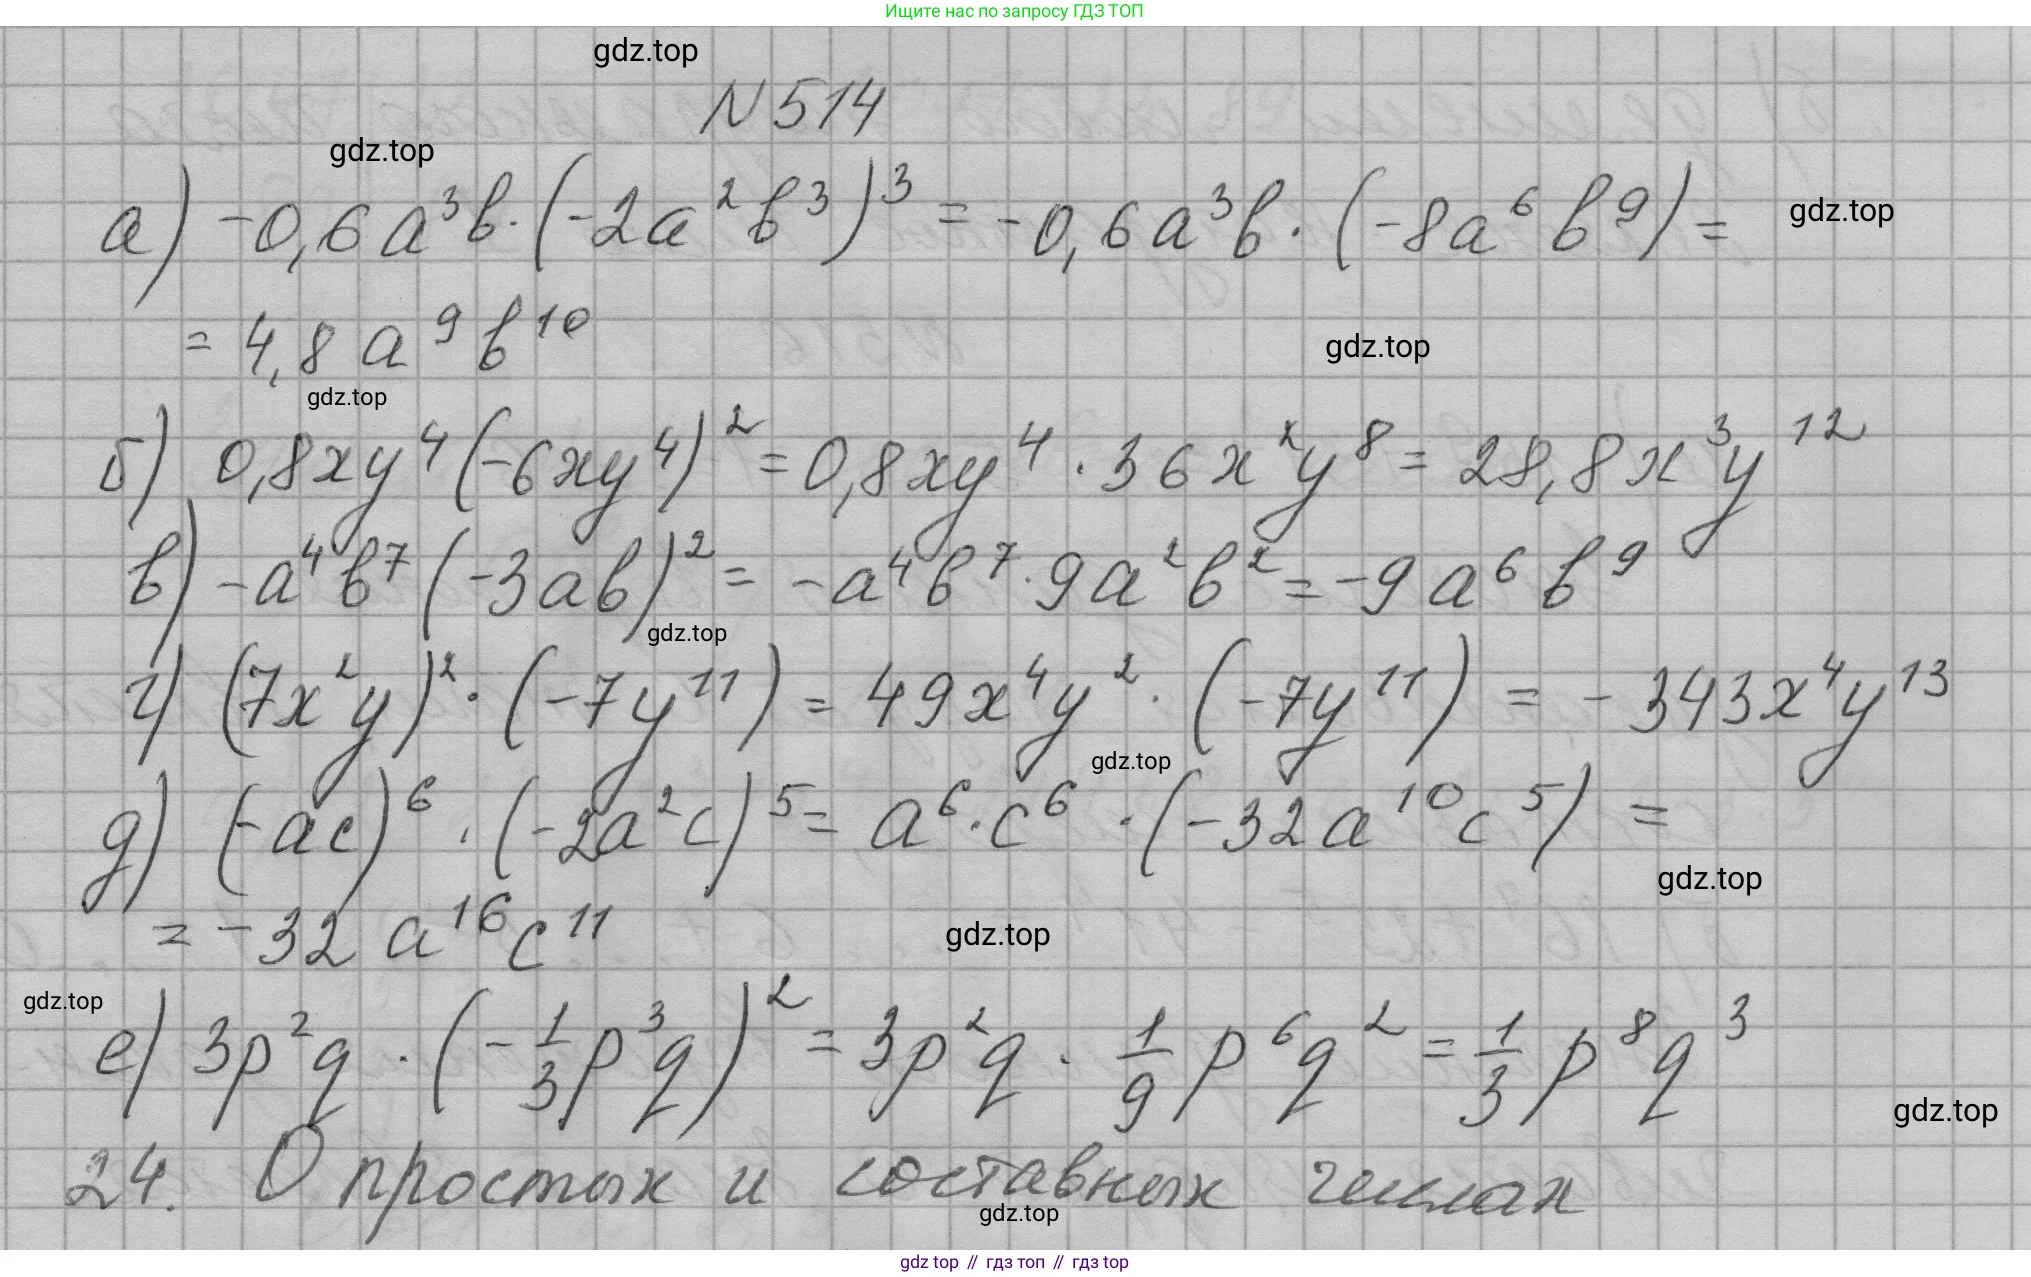 Ищите нас по запросу ГДЗ ТОП
gdz.top
N 514
gdz.top
а) -0,6a³b·(-2a²b³)³ = -0,6a³b·(-8a⁶b⁹) =
gdz.top
= 4,8a⁹b¹⁰
gdz.top
gdz.top
б) 0,8xy⁴(-6xy⁴)² = 0,8xy⁴·36x²y⁸ = 28,8x³y¹²
в) -a⁴b⁷(-3ab)² = -a⁴b⁷·9a²b² = -9a⁶b⁹
gdz.top
г) (7x²y)²·(-7y¹¹) = 49x⁴y²·(-7y¹¹) = -343x⁴y¹³
gdz.top
д) (-ac)⁶·(-2a²c)⁵ = a⁶·c⁶·(-32a¹⁰c⁵) =
gdz.top
= -32a¹⁶c¹¹
gdz.top
gdz.top
е) 3p²q·(-1/3p³q)² = 3p²q·1/9p⁶q² = 1/3p⁸q³
gdz.top
24. О простых и составных числах
gdz.top
gdz top // гдз топ // гдз top